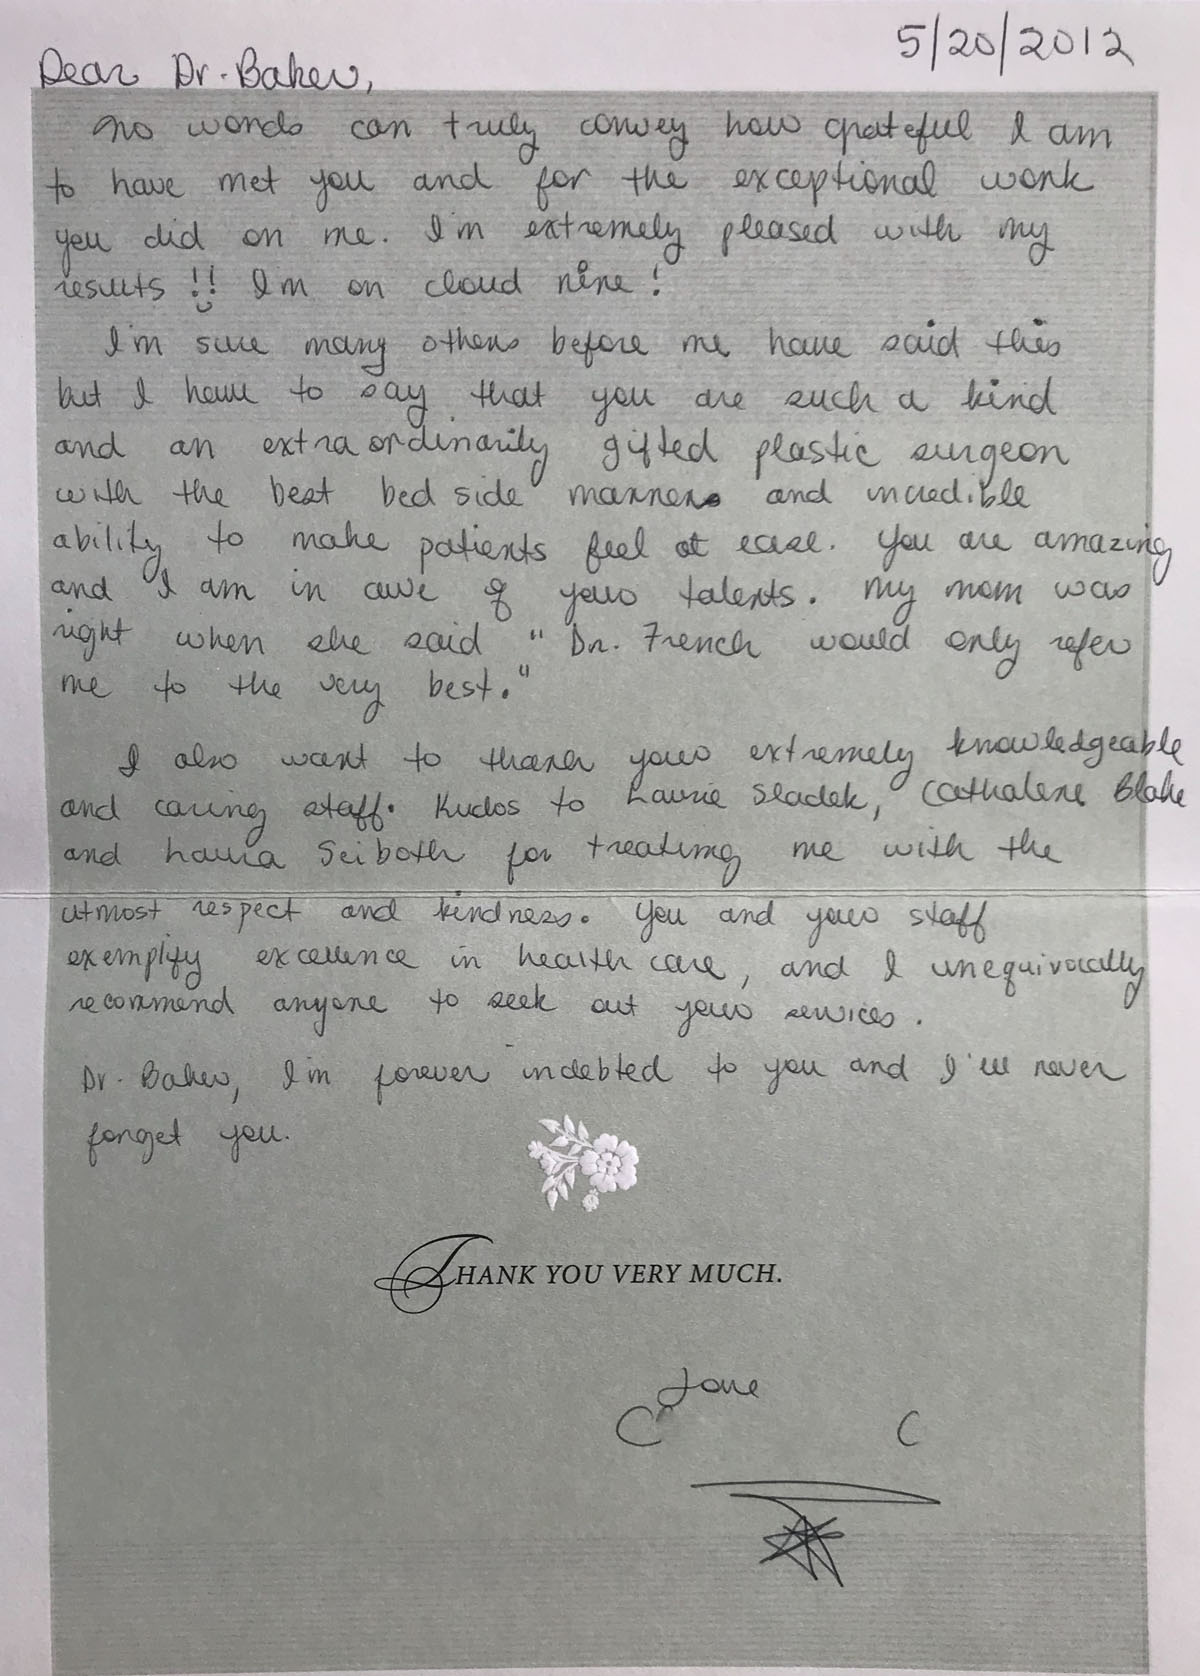 5/20/2012
Dear Dr. Baker,
No words can truly convey how grateful I am
to have met you and for the exceptional work
you did on me. I'm extremely pleased with my
results!! I'm on cloud nine!
I'm sure many others before me have said this
but I have to say that you are such a kind
and an extraordinarily gifted plastic surgeon
with the best bed side manners and incredible
ability to make patients feel at ease. You are amazing
and I am in awe of your talents. My mom was
right when she said "Dr. French would only refer
me to the very best."
I also want to thank your extremely knowledgeable
and caring staff. Kudos to Laurie Sladek, Cathalene Blake
and Laura Seiboth for treating me with the
utmost respect and kindness. You and your staff
exemplify excellence in health care, and I unequivocally
recommend anyone to seek out your services.
Dr. Baker, I'm forever indebted to you and I'll never
forget you.
THANK YOU VERY MUCH.
Love
C C